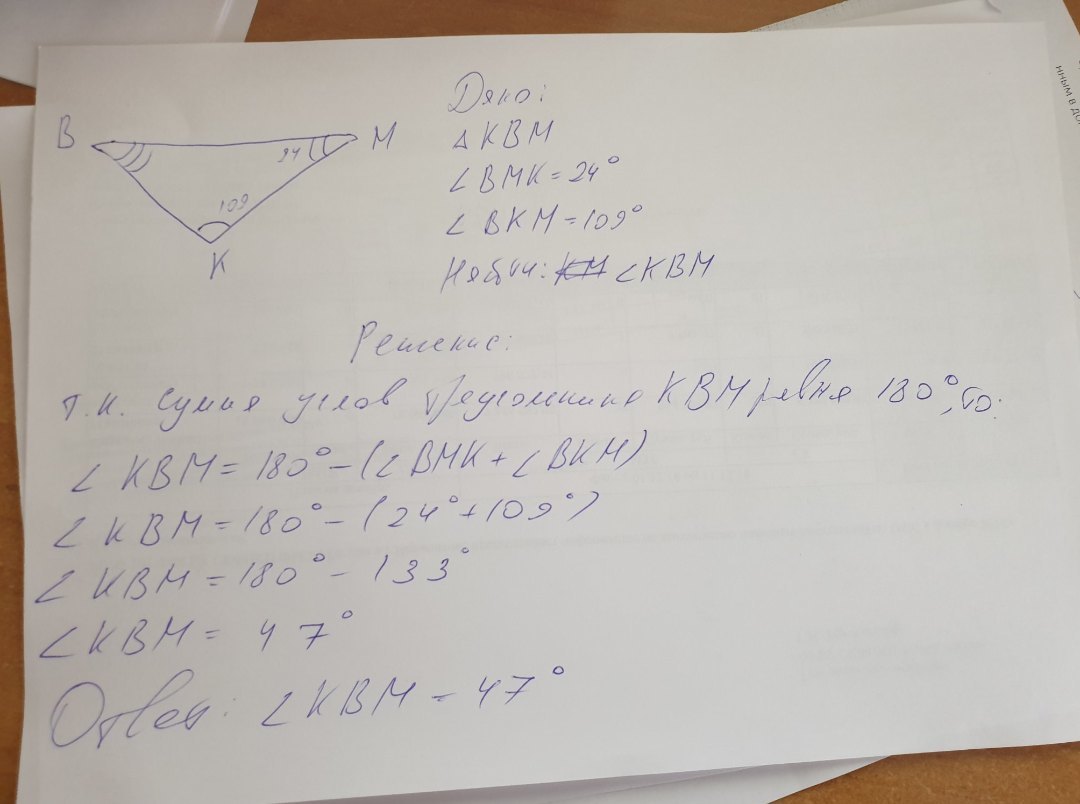 В
М
24
109
К
Дано:
△KBM
∠BMK=24°
∠BKM=109°
Найти: KM ∠KBM
Решение:
т.к. сумма углов треугольника KBM равна 180°, то:
∠KBM=180°-(∠BMK+∠BKM)
∠KBM=180°-(24°+109°)
∠KBM=180°-133°
∠KBM=47°
Ответ: ∠KBM=47°
нным в до